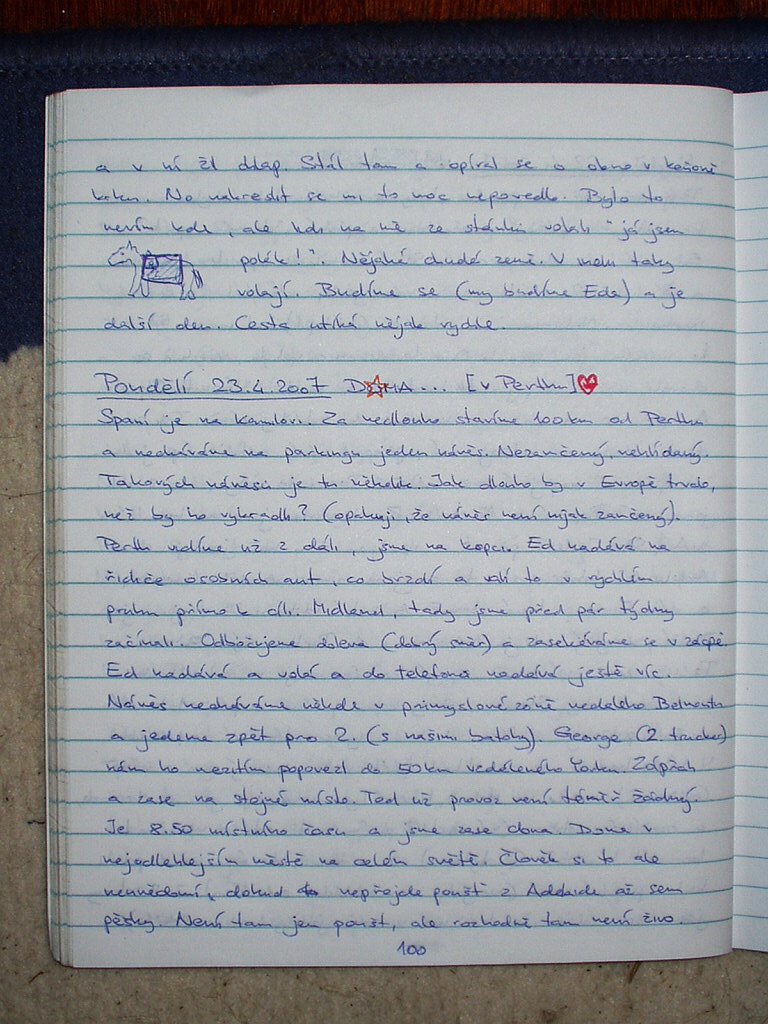 a v ní žl chlap. Stál tam a opíral se o okno v
No nakreslit se mi to moc nepovedlo. Bylo to
nevím kde, ale kdi na mě ze stánku volali "já jsem
polák!". Nějaké chudé země. V mohu taky
volají. Budíme se (my budíme Eda) a je
další den. Cesta utíká nějak rychle.
Pondělí 23.4.2007 DOMA... [v Perthu]
Spaní je na Kamilovi. Za nedlouho stavíme 100km od Perthu
a necháváme na parkingu jeden návěs. Nezamčený, nehlídaný.
Takových návěsů je tu několik. Jak dlouho by v Evropě trvalo,
než by ho vykradli? (opakuji, že návěs není nijak zamčený).
Perth vidíme už z dáli, jsme na kopci. Ed nadává na
řidiče osobních aut, co brzdí a valí to v rychlém
pruhu přímo k cíli. Midland, tady jsme před pár týdny
začínali. Odbočujeme doleva (dobrý směr) a zasekáváme se v zácpě.
Ed nadává a volá a do telefona nadává ještě víc.
Návěs necháváme někde v průmyslové zóně nedaleko Belmontu
a jedeme zpět pro 2. (s našimi batohy). George (2 trucker)
nám ho mezitím popovezl do 50km vzdáleného Yorku. Zápřah
a zase na stejné místo. Teď už provoz není téměř žádný.
Je 8.50 místního času a jsme zase doma. Doma v
nejodlehlejším městě na celém světě. Člověk si to ale
neuvědomí, dokud nepřejede poušť z Adelaide až sem
pěšky. Není tam jen poušť, ale rozhodně tam není živo.
100